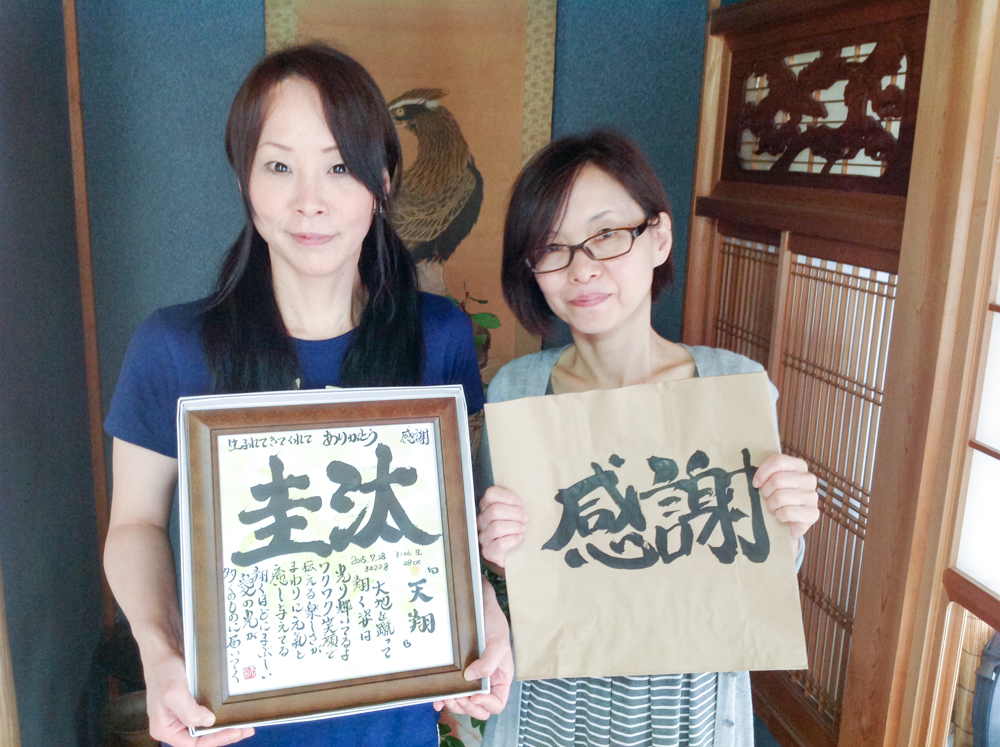 生まれてきてくれて ありがとう 感謝
圭汰
2015.7.28 3:06生
3022g 48cm
天翔
大地を蹴って
翔く姿は
光り輝いてるよ
ワクワク笑顔で
伝える楽しさが
まわりに元氣と
癒し与えてる
翔くほどにまぶしい
愛の光が
多くのものに届いてく
感謝